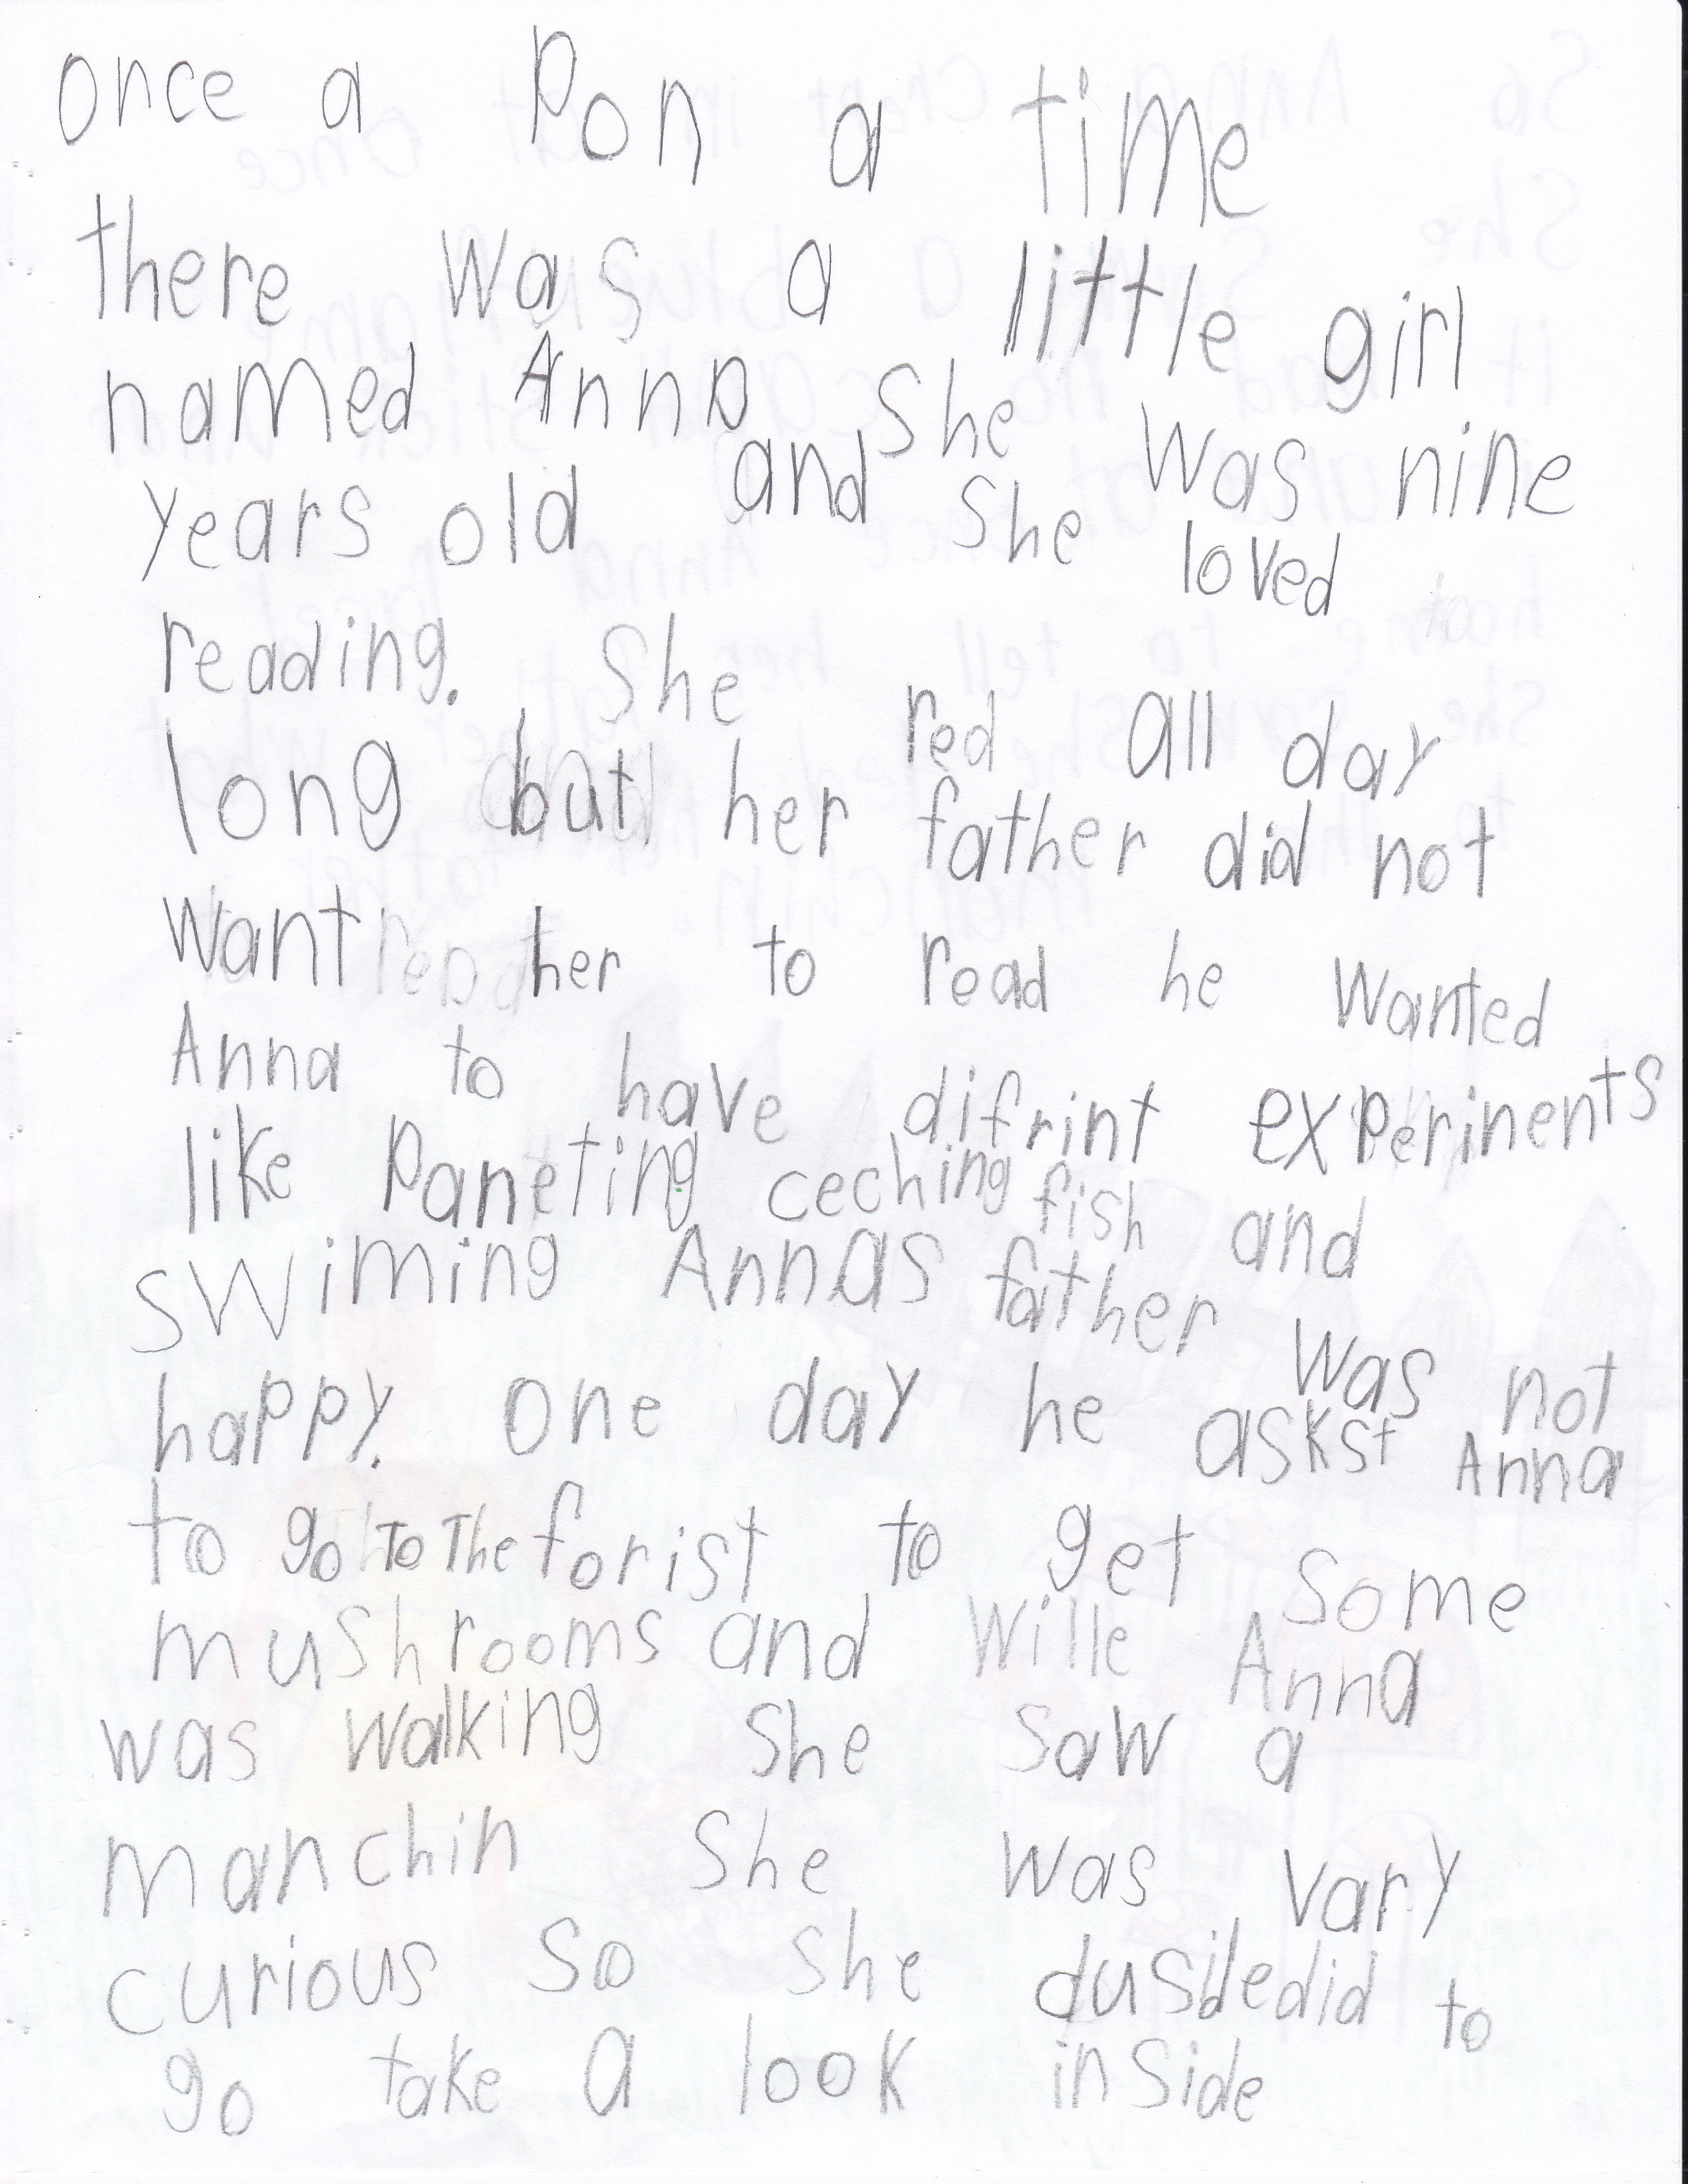 once a Pon a time
there was a little girl
named Anna she was nine
years old and she loved
reading. She red all day
long but her father did not
want her to read he wanted
Anna to have difrint experinents
like Paneting ceching fish and
swiming Annas father was not
happy. one day he askst Anna
to go To The forist to get some
mushrooms and wille Anna
was walking she saw a
manchin she was vary
curious so she dusidedid to
go take a look inside